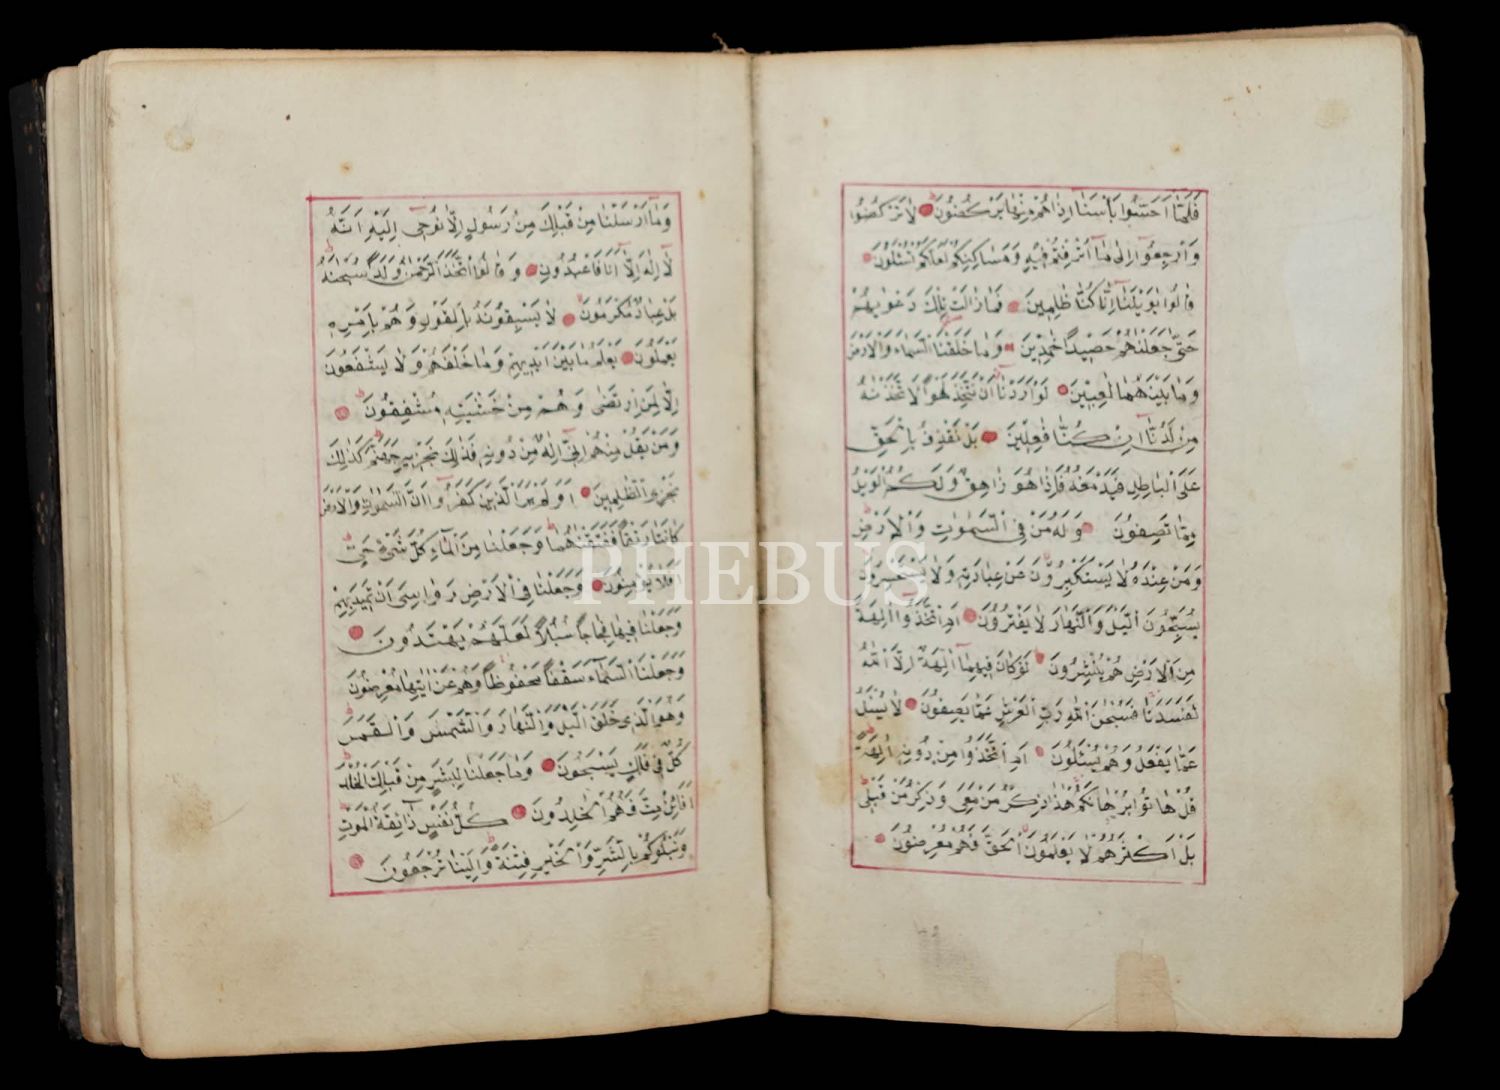 فَلَمَّا اَحَسُّوا بَأْسَنَا اِذَا هُمْ مِنْهَا يَرْكُضُونَ لَا تَرْكُضُوا
وَارْجِعُوا اِلٰى مَا اُتْرِفْتُمْ فِيهِ وَمَسَاكِنِكُمْ لَعَلَّكُمْ تُسْئَلُونَ
قَالُوا يَاوَيْلَنَا اِنَّا كُنَّا ظَالِمِينَ فَمَا زَالَتْ تِلْكَ دَعْوٰيهُمْ
حَتّٰى جَعَلْنَاهُمْ حَصِيدًا خَامِدِينَ وَمَا خَلَقْنَا السَّمَاءَ وَالْاَرْضَ
وَمَا بَيْنَهُمَا لَاعِبِينَ لَوْ اَرَدْنَا اَنْ نَتَّخِذَ لَهْوًا لَاتَّخَذْنَاهُ
مِنْ لَدُنَّا اِنْ كُنَّا فَاعِلِينَ بَلْ نَقْذِفُ بِالْحَقِّ
عَلَى الْبَاطِلِ فَيَدْمَغُهُ فَاِذَا هُوَ زَاهِقٌ وَلَكُمُ الْوَيْلُ
مِمَّا تَصِفُونَ وَلَهُ مَنْ فِي السَّمٰوَاتِ وَالْاَرْضِ
وَمَنْ عِنْدَهُ لَا يَسْتَكْبِرُونَ عَنْ عِبَادَتِهِ وَلَا يَسْتَحْسِرُونَ
يُسَبِّحُونَ الَّيْلَ وَالنَّهَارَ لَا يَفْتُرُونَ اَمِ اتَّخَذُوا اٰلِهَةً
مِنَ الْاَرْضِ هُمْ يُنْشِرُونَ لَوْ كَانَ فِيهِمَا اٰلِهَةٌ اِلَّا اللّٰهُ
لَفَسَدَتَا فَسُبْحَانَ اللّٰهِ رَبِّ الْعَرْشِ عَمَّا يَصِفُونَ لَا يُسْئَلُ
عَمَّا يَفْعَلُ وَهُمْ يُسْئَلُونَ اَمِ اتَّخَذُوا مِنْ دُونِهِ اٰلِهَةً
قُلْ هَاتُوا بُرْهَانَكُمْ هٰذَا ذِكْرُ مَنْ مَعِيَ وَذِكْرُ مَنْ قَبْلِي
بَلْ اَكْثَرُهُمْ لَا يَعْلَمُونَ الْحَقَّ فَهُمْ مُعْرِضُونَ
وَمَا اَرْسَلْنَا مِنْ قَبْلِكَ مِنْ رَسُولٍ اِلَّا نُوحِي اِلَيْهِ اَنَّهُ
لَا اِلٰهَ اِلَّا اَنَا فَاعْبُدُونِ وَقَالُوا اتَّخَذَ الرَّحْمٰنُ وَلَدًا سُبْحَانَهُ
بَلْ عِبَادٌ مُكْرَمُونَ لَا يَسْبِقُونَهُ بِالْقَوْلِ وَهُمْ بِاَمْرِهِ
يَعْمَلُونَ يَعْلَمُ مَا بَيْنَ اَيْدِيهِمْ وَمَا خَلْفَهُمْ وَلَا يَشْفَعُونَ
اِلَّا لِمَنِ ارْتَضٰى وَهُمْ مِنْ خَشْيَتِهِ مُشْفِقُونَ
وَمَنْ يَقُلْ مِنْهُمْ اِنِّي اِلٰهٌ مِنْ دُونِهِ فَذٰلِكَ نَجْزِيهِ جَهَنَّمَ كَذٰلِكَ
نَجْزِي الظَّالِمِينَ اَوَلَمْ يَرَ الَّذِينَ كَفَرُوا اَنَّ السَّمٰوَاتِ وَالْاَرْضَ
كَانَتَا رَتْقًا فَفَتَقْنَاهُمَا وَجَعَلْنَا مِنَ الْمَاءِ كُلَّ شَيْءٍ حَيٍّ
اَفَلَا يُؤْمِنُونَ وَجَعَلْنَا فِي الْاَرْضِ رَوَاسِيَ اَنْ تَمِيدَ بِهِمْ
وَجَعَلْنَا فِيهَا فِجَاجًا سُبُلًا لَعَلَّهُمْ يَهْتَدُونَ
وَجَعَلْنَا السَّمَاءَ سَقْفًا مَحْفُوظًا وَهُمْ عَنْ اٰيَاتِهَا مُعْرِضُونَ
وَهُوَ الَّذِي خَلَقَ الَّيْلَ وَالنَّهَارَ وَالشَّمْسَ وَالْقَمَرَ
كُلٌّ فِي فَلَكٍ يَسْبَحُونَ وَمَا جَعَلْنَا لِبَشَرٍ مِنْ قَبْلِكَ الْخُلْدَ
اَفَائِنْ مِتَّ فَهُمُ الْخَالِدُونَ كُلُّ نَفْسٍ ذَائِقَةُ الْمَوْتِ
وَنَبْلُوكُمْ بِالشَّرِّ وَالْخَيْرِ فِتْنَةً وَاِلَيْنَا تُرْجَعُونَ
PHEBUS